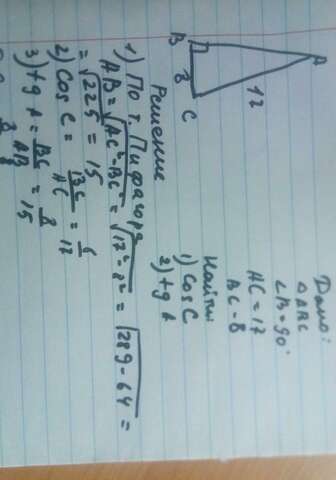 Дано:
△ABC
∠B=90°
AC=17
BC-8
Найти:
1) Cos C
2) tg A
A
B
C
8
17
Решение
1) По т. Пифагора
AB=√AC²-BC² = √17²-8² = √289-64 =
=√225 = 15
2) Cos C = BC/AC = 8/17
3) tg A = BC/AB = 8/15